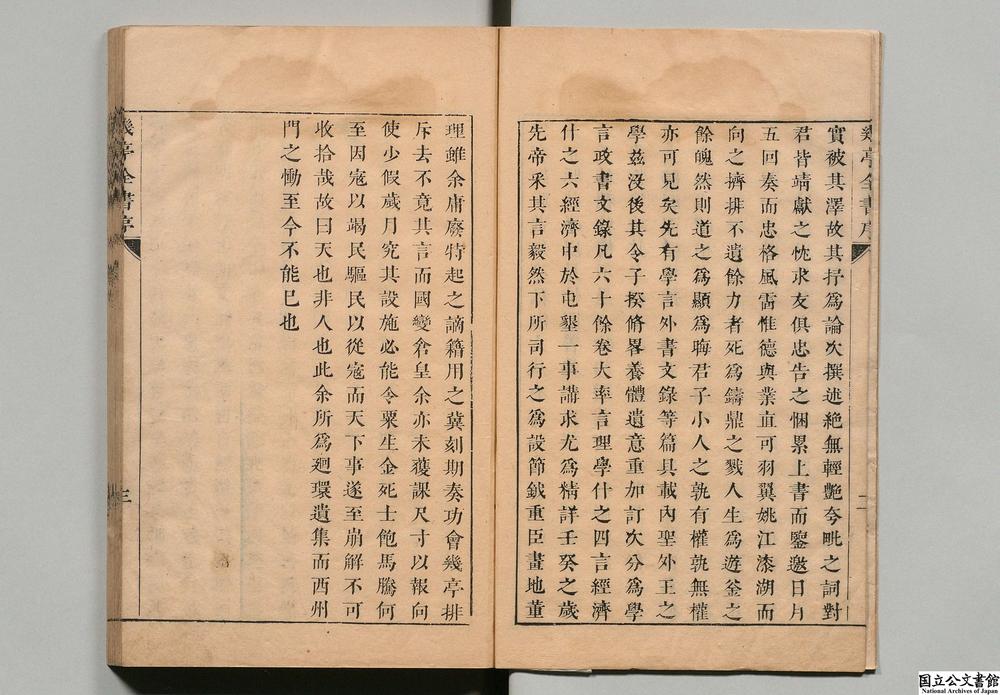 幾亭全書序
二
實被其澤故其抒為論次撰述絕無輕艷夸毗之詞對
君皆靖獻之忱求友俱忠告之悃累上書而鑒邀日月
五回奏而忠格風雷惟德與業直可羽翼姚江漆湖而
向之擠排不遺餘力者死為鑄鼎之戮人生為遊釜之
餘魄然則道之為顯為晦君子小人之孰有權孰無權
亦可見矣先有學言外書文錄等篇具載內聖外王之
學茲沒後其令子揆脩畧養體遺意重加訂次分為學
言政書文錄凡六十餘卷大率言理學什之四言經濟
什之六經濟中於屯墾一事講求尤為精詳壬癸之歲
先帝采其言毅然下所司行之為設節鉞重臣畫地董
理雖余庸廢特起之謫籍用之冀刻期奏功會幾亭排
斥去不竟其言而國變倉皇余亦未獲課尺寸以報向
使少假歲月究其設施必能令粟生金死士飽馬騰何
至因寇以竭民驅民以從寇而天下事遂至崩解不可
收拾哉故曰天也非人也此余所為廻環遺集而西州
門之慟至今不能已也
幾亭全書序
三
国立公文書館
National Archives of Japan